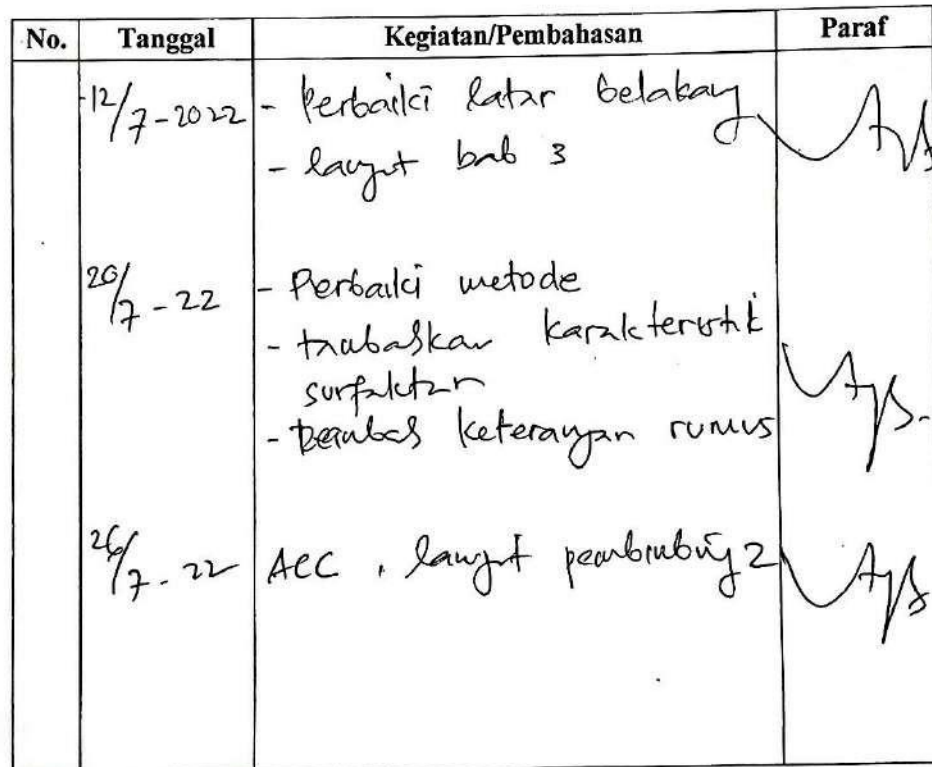 No. Tanggal Kegiatan/Pembahasan Paraf
12/7-2022 - Perbaiki latar belakang
- lanjut bab 3
20/7-22 - Perbaiki metode
- tambahkan karakteristik
surfaktan
- keterangan rumus
26/7-22 ACC, lanjut pembimbing 2